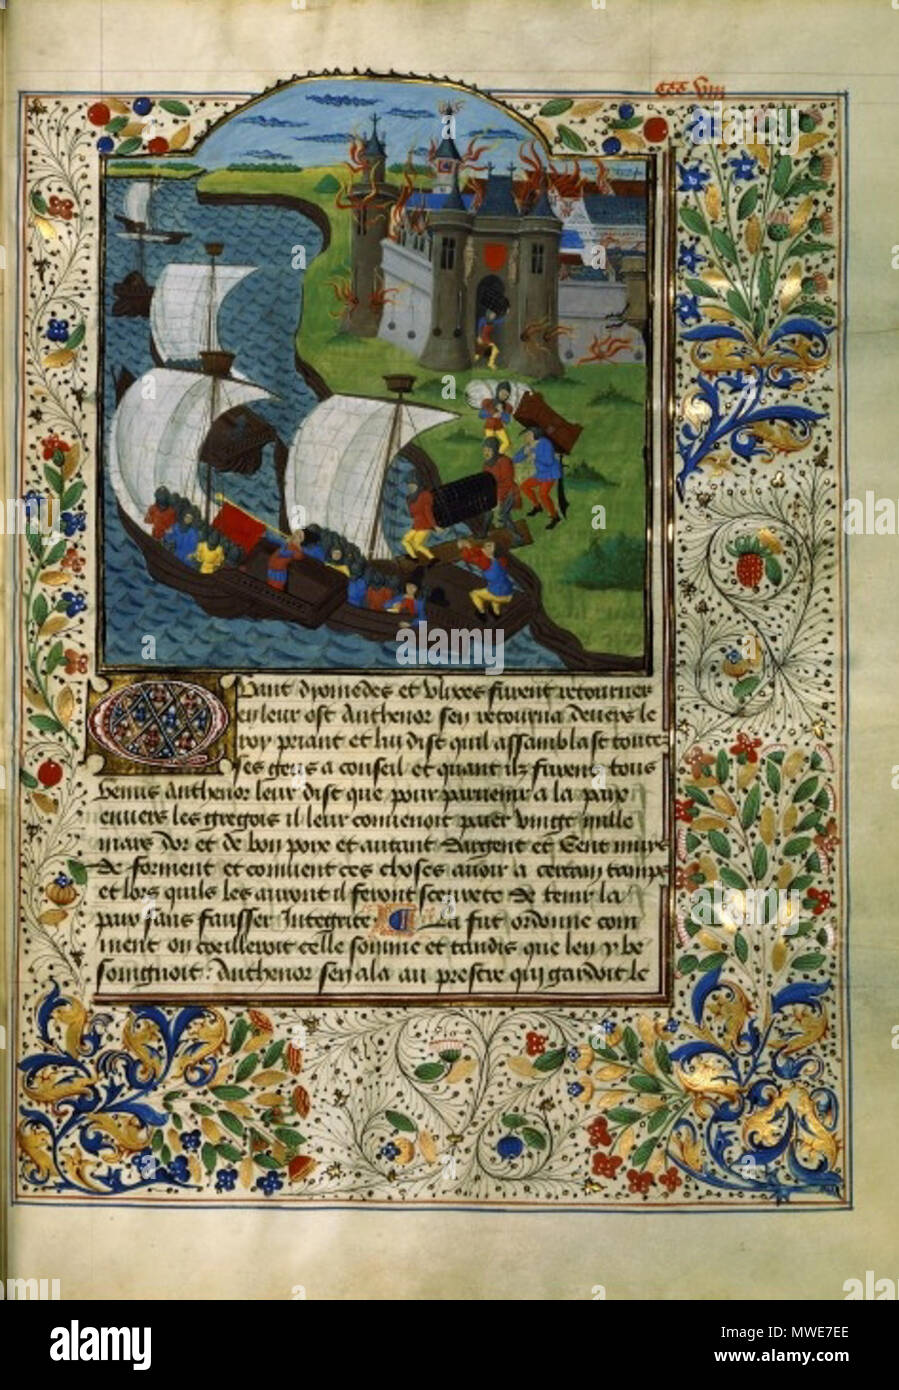 CCC VIII
Quant dyomedes et Ulixes furent retournez
en leur ost Anthenor sen retourna devers le
roy priant et lui dist quil assemblast toutes
ses gens a conseil et quant ilz furent tous
venus Anthenor leur dist que pour parvenir a la paix
envers les gregois il leur convenoit paier vingt mille
mars dor et de bon poix et autant dargent et Cent muys
de forment et convient ces choses avoir a certain temps
et lors quils les auront il feront sceurete de tenir la
paix sans fausser Integrite La fut ordonne com
ment on coeilleroit celle somme et tandis que len y be
soingnoit: Anthenor sen ala au prestre qui gardoit le
a alamy stock photo
alamy
Image ID: MWE7EE
www.alamy.com